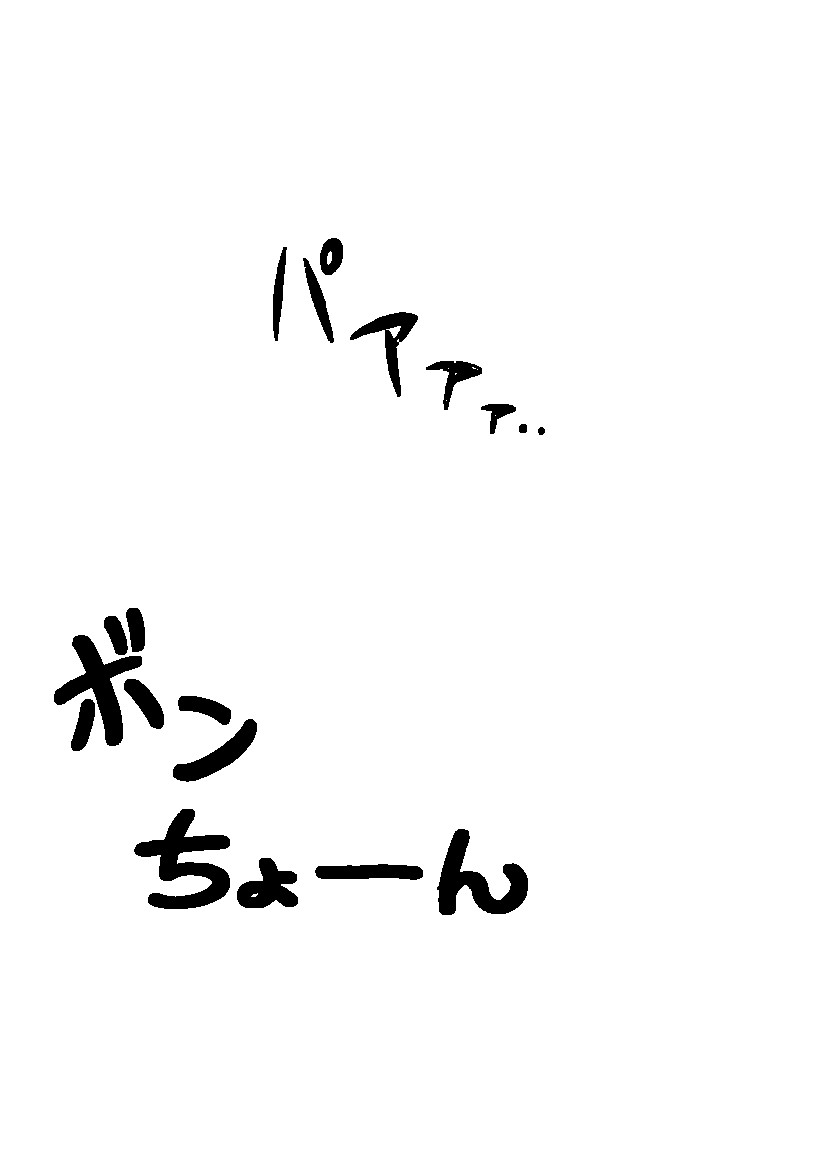 パァァァ..
ボン
ちょーん